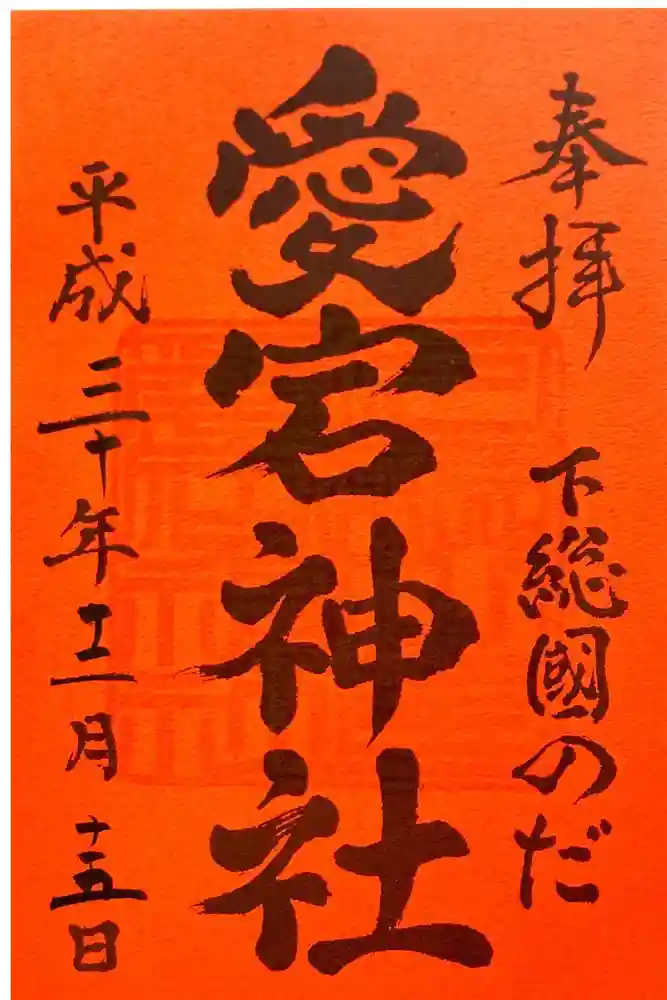 奉拝
下総國のだ
愛宕神社
平成三十年十二月十五日